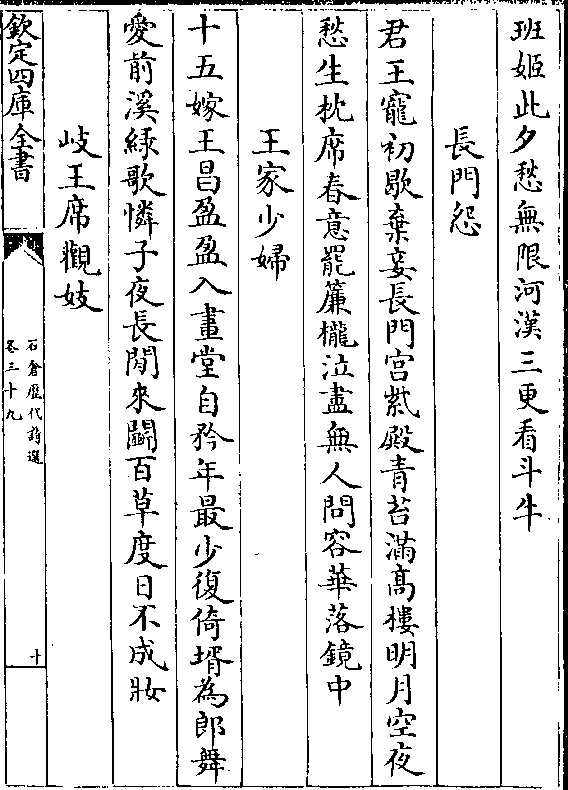 班姬此夕愁無限河漢三更看斗牛
長門怨
君王寵初歇棄妾長門宮紫殿青苔滿高樓明月空夜
愁生枕席春意罷簾櫳泣盡無人問容華落鏡中
王家少婦
十五嫁王昌盈盈入畫堂自矜年最少復倚壻為郎舞
愛前溪綠歌憐子夜長閒來鬭百草度日不成妝
岐王席觀妓
欽定四庫全書
石倉歷代詩選
卷三十九
十